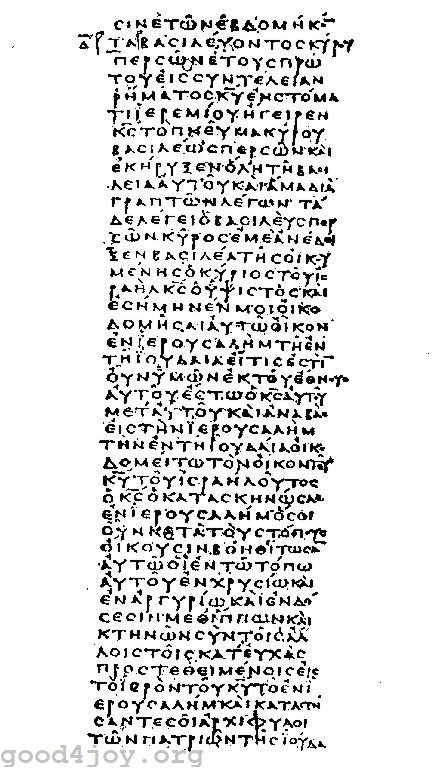 ϹΙΝΕΤΩΝΕΒΔΟΜΗΚΟ̅
ΤΑΒΑϹΙΛΕΥΟΝΤΟϹΚΥΡΟΥ
ΠΕΡϹΩΝΕΤΟΥϹΠΡΩ
ΤΟΥΕΙϹϹΥΝΤΕΛΕΙΑΝ
ΡΗΜΑΤΟϹΚ̅Υ̅ΕΝϹΤΟΜΑ
ΤΙΙΕΡΕΜΙΟΥΗΓΕΙΡΕΝ
Κ̅Ϲ̅ΤΟΠΝΕΥΜΑΚΥΡΟΥ
ΒΑϹΙΛΕΩϹΠΕΡϹΩΝΚΑΙ
ΕΚΗΡΥΞΕΝΟΛΗΤΗΒΑϹΙ
ΛΕΙΑΑΥΤΟΥΚΑΙΑΜΑΔΙΑ
ΓΡΑΠΤΩΝΛΕΓΩΝΤΑ
ΔΕΛΕΓΕΙΟΒΑϹΙΛΕΥϹΠΕΡ
ϹΩΝΚΥΡΟϹΕΜΕΑΝΕΔΕΙ
ΞΕΝΒΑϹΙΛΕΑΤΗϹΟΙΚΟΥ
ΜΕΝΗϹΟΚΥΡΙΟϹΤΟΥΙϹ
ΡΑΗΛΚ̅Ϲ̅ΟΥΨΙϹΤΟϹΚΑΙ
ΕϹΗΜΗΝΕΝΜΟΙΟΙΚΟ
ΔΟΜΗϹΑΙΑΥΤΩΟΙΚΟΝ
ΕΝΙΕΡΟΥϹΑΛΗΜΤΗΕΝ
ΤΗΙΟΥΔΑΙΑΕΙΤΙϹΕϹΤΙΝ
ΟΥΝΥΜΩΝΕΚΤΟΥΕΘΝΟΥϹ
ΑΥΤΟΥΕϹΤΩΟΚ̅Ϲ̅ΑΥΤΟΥ
ΜΕΤΑΥΤΟΥΚΑΙΑΝΑΒΑϹ
ΕΙϹΤΗΝΙΕΡΟΥϹΑΛΗΜ
ΤΗΝΕΝΤΗΙΟΥΔΑΙΑΟΙΚΟ
ΔΟΜΕΙΤΩΤΟΝΟΙΚΟΝΤΟΥ
Κ̅Υ̅ΤΟΥΙϹΡΑΗΛΟΥΤΟϹ
ΟΚ̅Ϲ̅ΟΚΑΤΑϹΚΗΝΩϹΑϹ
ΕΝΙΕΡΟΥϹΑΛΗΜΟϹΟΙ
ΟΥΝΚΑΤΑΤΟΥϹΤΟΠΟΥϹ
ΟΙΚΟΥϹΙΝΒΟΗΘΙΤΩϹΑΝ
ΑΥΤΩΟΙΕΝΤΩΤΟΠΩ
ΑΥΤΟΥΕΝΧΡΥϹΙΩΚΑΙ
ΕΝΑΡΓΥΡΙΩΚΑΙΕΝΔΟ
ϹΕϹΙΝΜΕΘΙΠΠΩΝΚΑΙ
ΚΤΗΝΩΝϹΥΝΤΟΙϹΑΛ
ΛΟΙϹΤΟΙϹΚΑΤΕΥΧΑϹ
ΠΡΟϹΤΕΘΕΙΜΕΝΟΙϹΕΙϹ
ΤΟΙΕΡΟΝΤΟΥΚ̅Υ̅ΤΟΕΝΙ
ΕΡΟΥϹΑΛΗΜΚΑΙΚΑΤΑϹΤΗ
ϹΑΝΤΕϹΟΙΑΡΧΙΦΥΛΟΙ
ΤΩΝΠΑΤΡΙΩΝΤΗϹΙΟΥΔΑ
good4joy.org